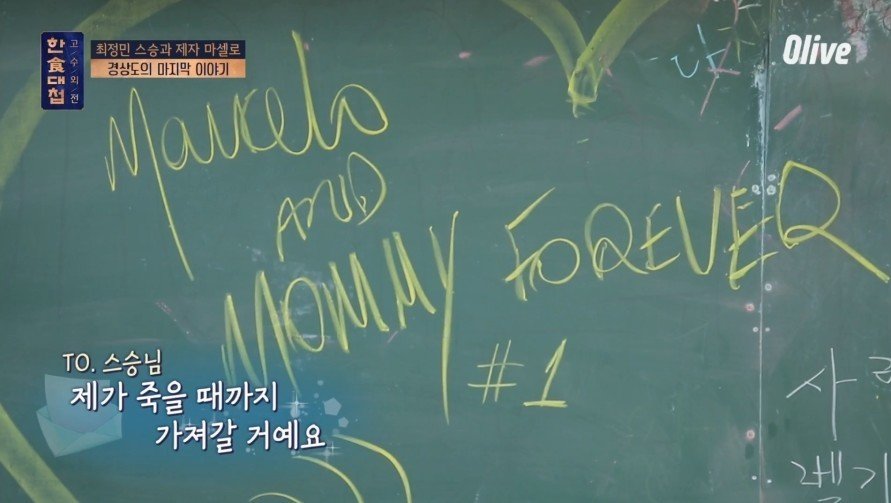 한食대첩
고수외전
최정민 스승과 제자 마셀로
경상도의 마지막 이야기
Olive
Marcelo
AND
MOMMY FOREVER
#1
TO. 스승님
제가 죽을 때까지
가져갈 거예요